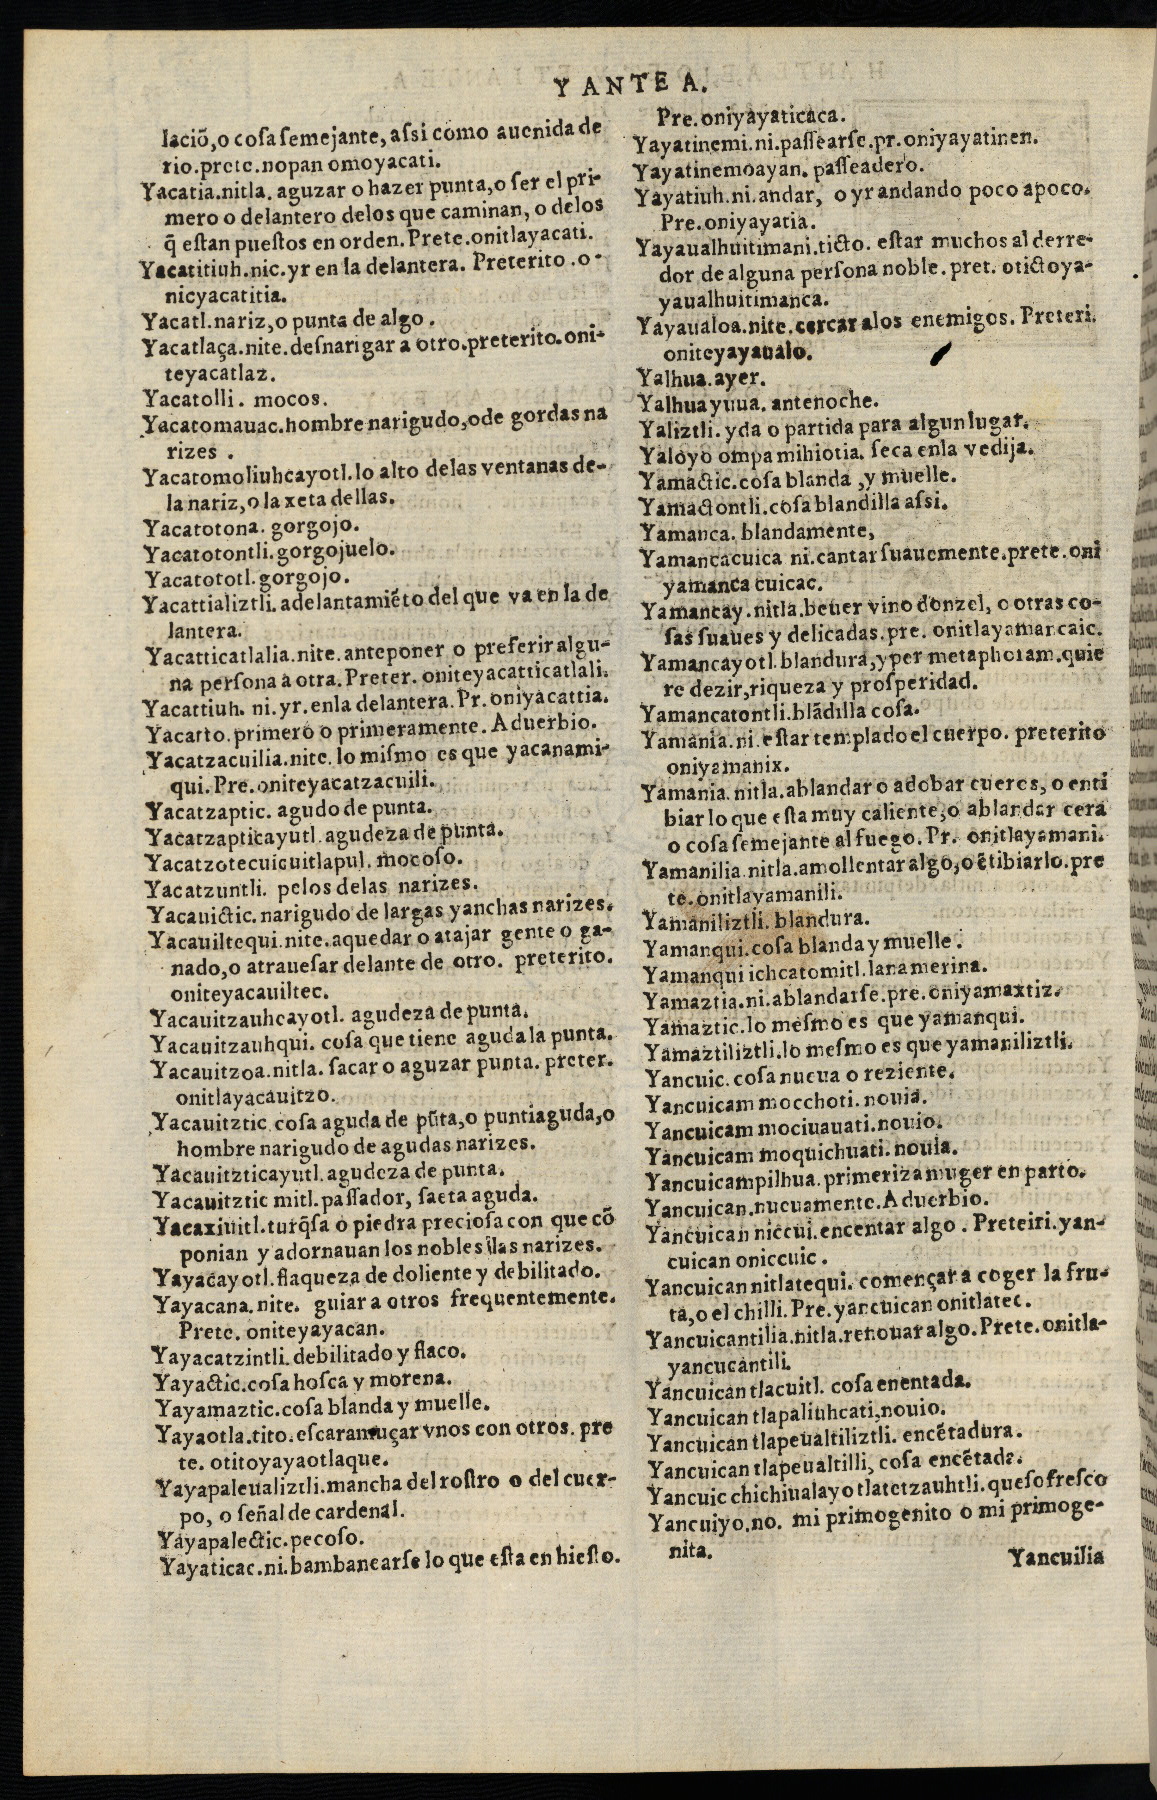 Y ANTE A.
lació̃,o cosa semejante, assi como auenida de
rio.prete.nopan omoyacati.
Yacatia.nitla. aguzar o hazer punta,o ser el pri-
mero o delantero delos que caminan, o delos
q̃ estan puestos en orden.Prete.onitlayacati.
Yacatitiuh.nic.yr en la delantera. Preterito.o-
nicyacatitia.
Yacatl.nariz,o punta de algo.
Yacatlaça.nite.desnarigar a otro.preterito.oni-
teyacatlaz.
Yacatolli. mocos.
Yacatomauac.hombre narigudo,o de gordas na
rizes.
Yacatomoliuhcayotl.lo alto delas ventanas de-
la nariz,o la xeta dellas.
Yacatotona. gorgojo.
Yacatotontli.gorgojuelo.
Yacatototl.gorgojo.
Yacattializtli.adelantamiẽto del que va en la de
lantera.
Yacatticatlalia.nite.anteponer o preferir algu-
na persona a otra.Preter. oniteyacatticatlali.
Yacattiuh. ni.yr.enla delantera.Pr.oniyacattia.
Yacatto.primero o primeramente. Aduerbio.
Yacatzacuilia.nite.lo mismo es que yacanami-
qui.Pre.oniteyacatzacuili.
Yacatzaptic. agudo de punta.
Yacatzapticayutl.agudeza de punta.
Yacatzotecuicuitlapul. mocoso.
Yacatzuntli. pelos delas narizes.
Yacauictic.narigudo de largas y anchas narizes.
Yacauiltequi.nite.aquedar o atajar gente o ga-
nado,o atrauesar delante de otro. preterito.
oniteyacauiltec.
Yacauitzauhcayotl. agudeza de punta.
Yacauitzauhqui. cosa que tiene aguda la punta.
Yacauitzoa.nitla. sacar o aguzar punta. preter.
onitlayacauitzo.
Yacauitztic.cosa aguda de pũta,o puntiaguda,o
hombre narigudo de agudas narizes.
Yacauitzticayutl.agudeza de punta.
Yacauitztic mitl.passador, saeta aguda.
Yacaxiuitl.turq̃sa o piedra preciosa con que cõ
ponian y adornauan los nobles ślas narizes.
Yayacayotl.flaqueza de doliente y debilitado.
Yayacana.nite. guiar a otros frequentemente.
Prete. oniteyayacan.
Yayacatzintli.debilitado y flaco.
Yayactic.cosa hosca y morena.
Yayamaztic.cosa blanda y muelle.
Yayaotla.tito.escaramuçar vnos con otros. pre
te. otitoyayaotlaque.
Yayapaleualiztli.mancha del rostro o del cuer-
po, o señal de cardenal.
Yayapalectic.pecoso.
Yayaticac.ni.bambanearse lo que esta en hiesto.
Pre.oniyayaticaca.
Yayatinemi.ni.passearse.pr.oniyayatinen.
Yayatinemoayan. passeadero.
Yayatiuh.ni.andar, o yr andando poco apoco.
Pre.oniyayatia.
Yayaualhuitimani.ticto. estar muchos al derre-
dor de alguna persona noble.pret. otictoya-
yaualhuitimanca.
Yayaualoa.nite.cercar alos enemigos. Preteri.
oniteyayaualo.
Yalhua.ayer.
Yalhua yuua. antenoche.
Yaliztli.yda o partida para algun lugar.
Yaloyo ompa mihiotia. seca enla vedija.
Yamactic.cosa blanda,y muelle.
Yamactontli.cosa blandilla assi.
Yamanca. blandamente,
Yamanca cuica ni.cantar suauemente.prete.oni
yamanca cuicac.
Yamancay.nitla.beuer vino donzel, o otras co-
sas suaues y delicadas.pre. onitlayamancaic.
Yamancayotl.blandura,y per metaphoram.quie
re dezir,riqueza y prosperidad.
Yamancatontli.blãdilla cosa.
Yamania.ni.estar templado el cuerpo. preterito
oniyamanix.
Yamania.nitla.ablandar o adobar cueros, o enti
biar lo que esta muy caliente,o ablandar cera
o cosa semejante al fuego. Pr. onitlayamani.
Yamanilia.nitla.amollentar algo,o ẽtibiarlo.pre
te.onitlayamanili.
Yamaniliztli. blandura.
Yamanqui.cosa blanda y muelle.
Yamanqui ichcatomitl.lana merina.
Yamaztia.ni.ablandarse.pre.oniyamaxtiz.
Yamaztic.lo mesmo es que yamanqui.
Yamaztiliztli.lo mesmo es que yamaniliztli.
Yancuic. cosa nueua o reziente.
Yancuicam mocchoti. nouia.
Yancuicam mociuauati.nouio.
Yancuicam moquichuati. nouia.
Yancuicampilhua.primeriza muger en parto.
Yancuican.nueuamente.Aduerbio.
Yancuican niccui.encentar algo. Preteiri.yan-
cuican oniccuic.
Yancuican nitlatequi. començar a coger la fru-
ta,o el chilli.Pre.yancuican onitlatec.
Yancuicantilia.nitla.renouar algo.Prete.onitla-
yancucantili.
Yancuican tlacuitl. cosa enentada.
Yancuican tlapaliuhcati,nouio.
Yancuican tlapeualtiliztli. encẽtadura.
Yancuican tlapeualtilli, cosa encẽtada.
Yancuic chichiualayotlatetzauhtli.queso fresco
Yancuiyo.no. mi primogenito o mi primoge-
nita.
Yancuilia